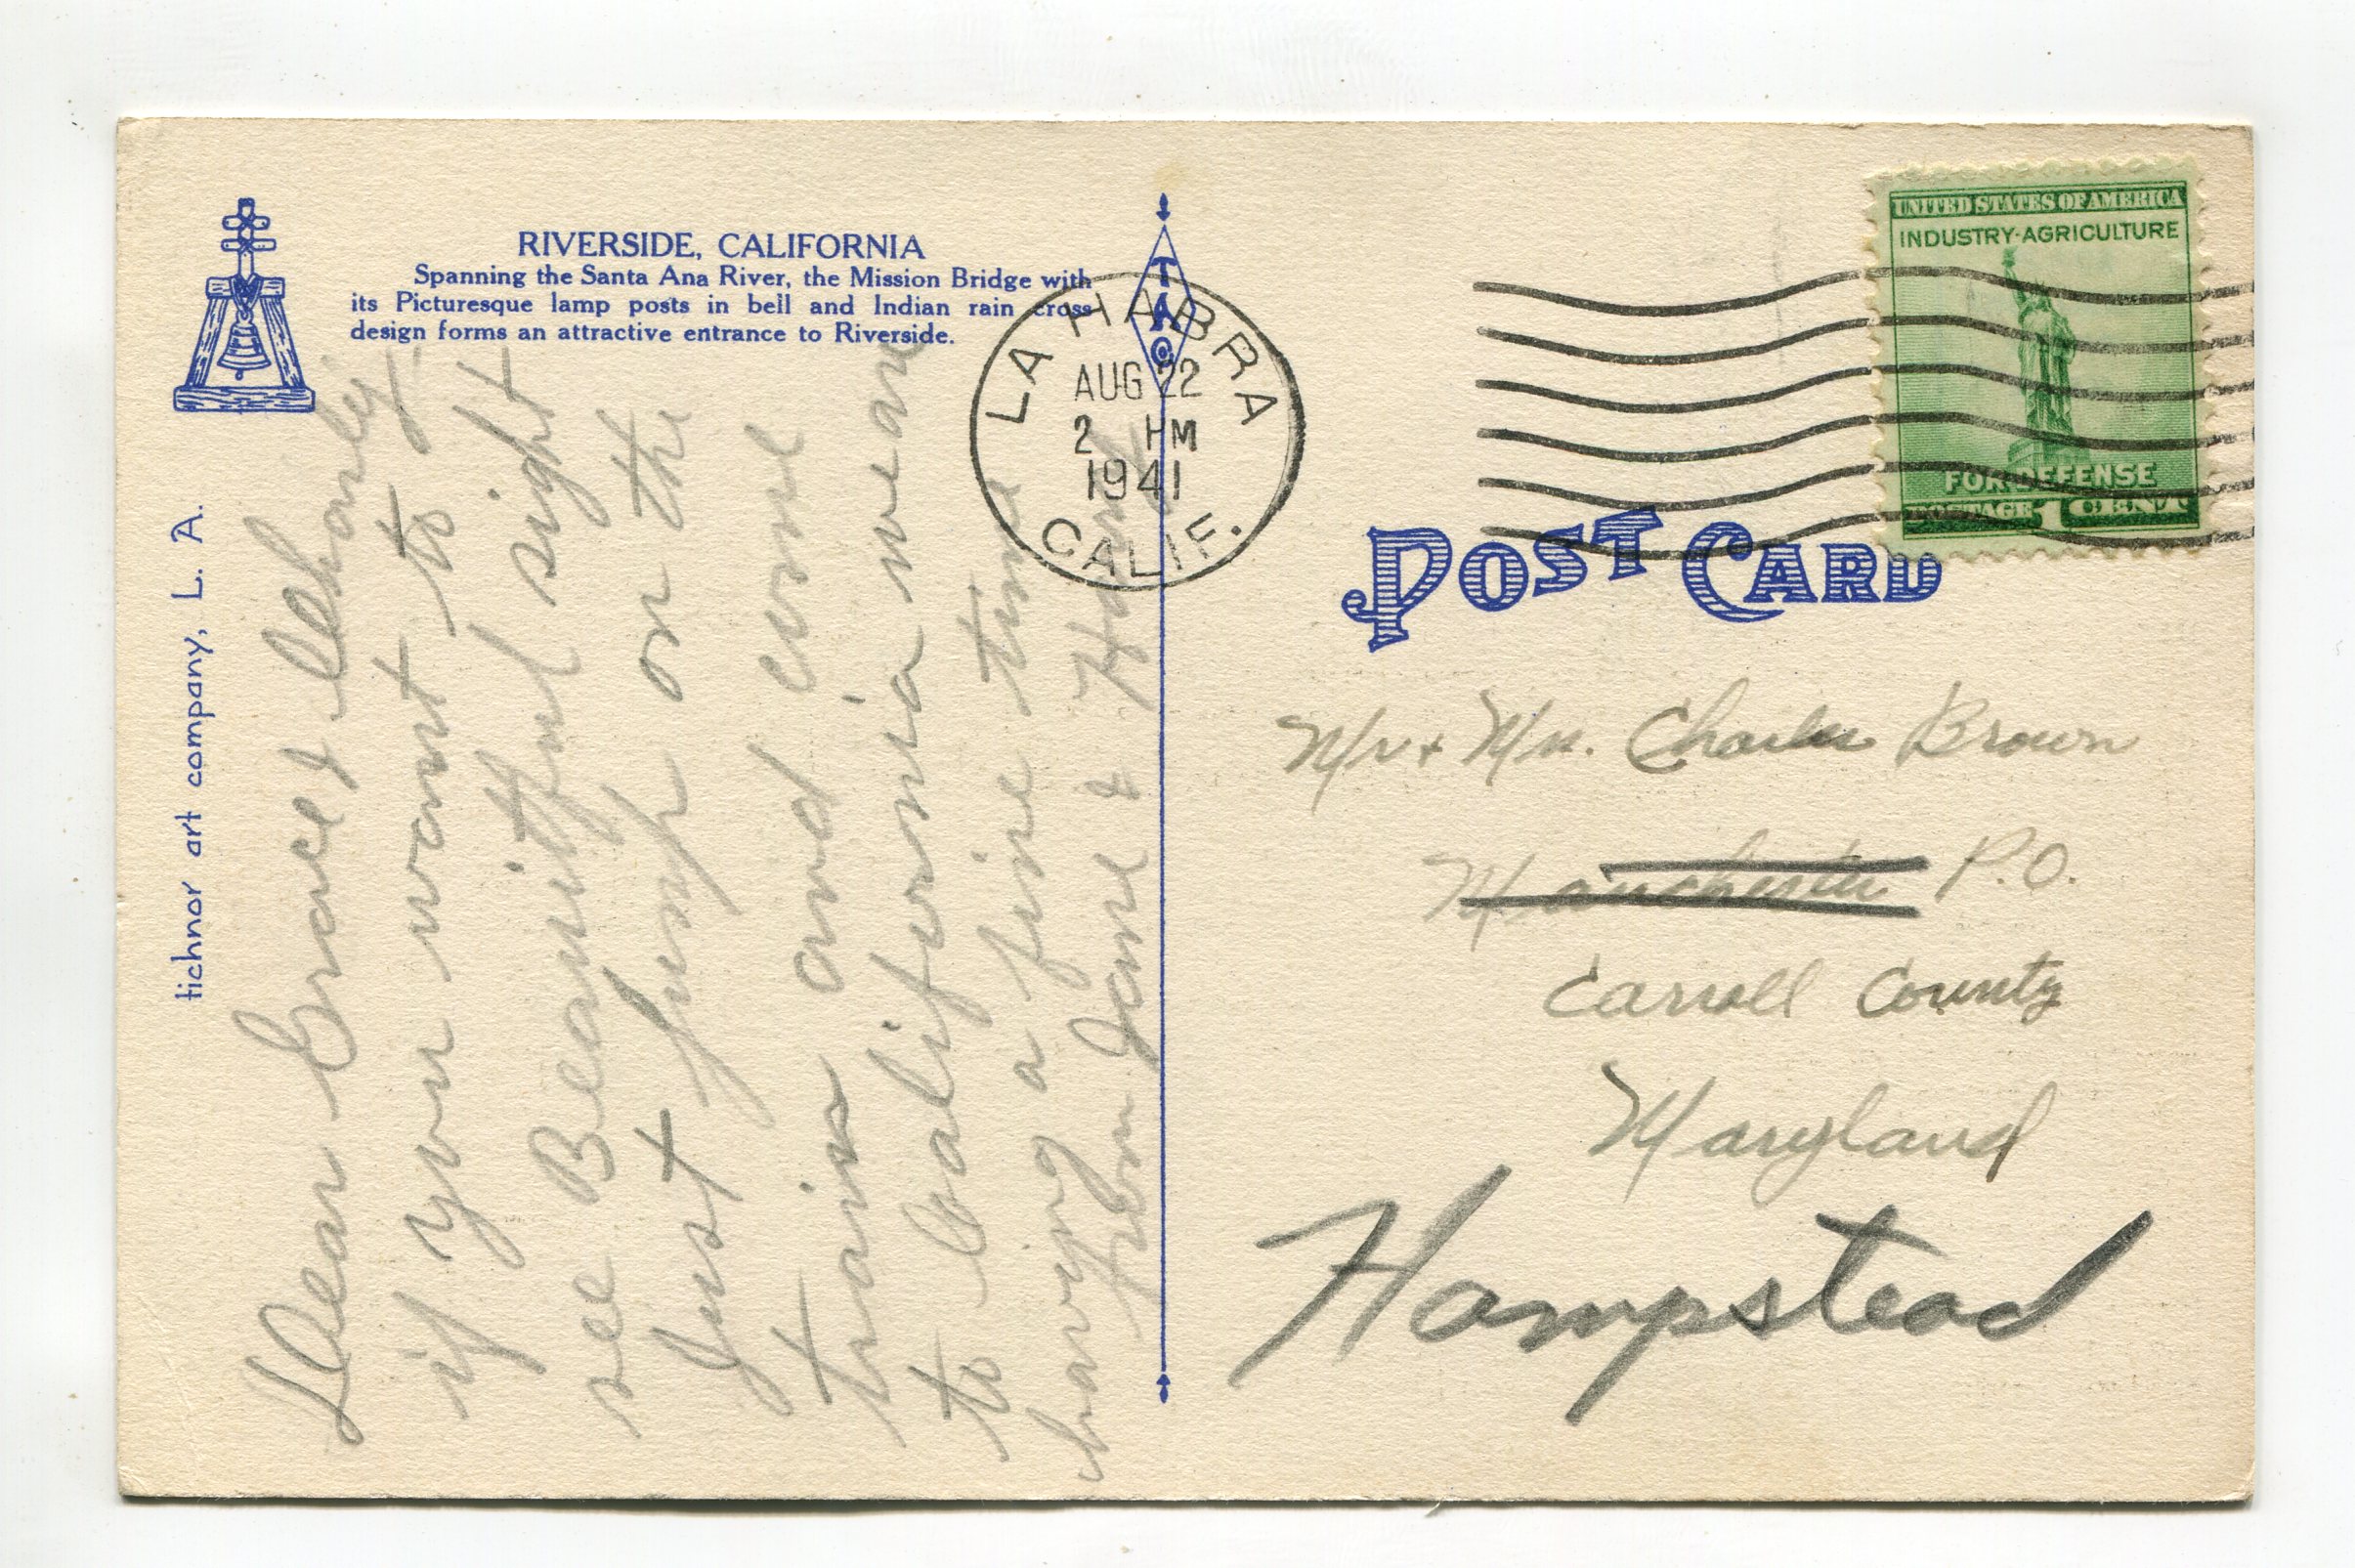 RIVERSIDE, CALIFORNIA
Spanning the Santa Ana River, the Mission Bridge with
its Picturesque lamp posts in bell and Indian rain cross
design forms an attractive entrance to Riverside.
tichnor art company, L. A.
TAC
Dear Grace & Charley
if you want to
see Beautiful sight
Just jump on the
train and come
to California we are
having a fine time
from Jane &
LA HABRA
AUG 22
2 PM
1941
CALIF.
UNITED STATES OF AMERICA
INDUSTRY·AGRICULTURE
FOR DEFENSE
POSTAGE 1 CENT
POST CARD
Mr + Mrs. Charles Brown
Manchester P.O.
Carroll County
Maryland
Hampstead